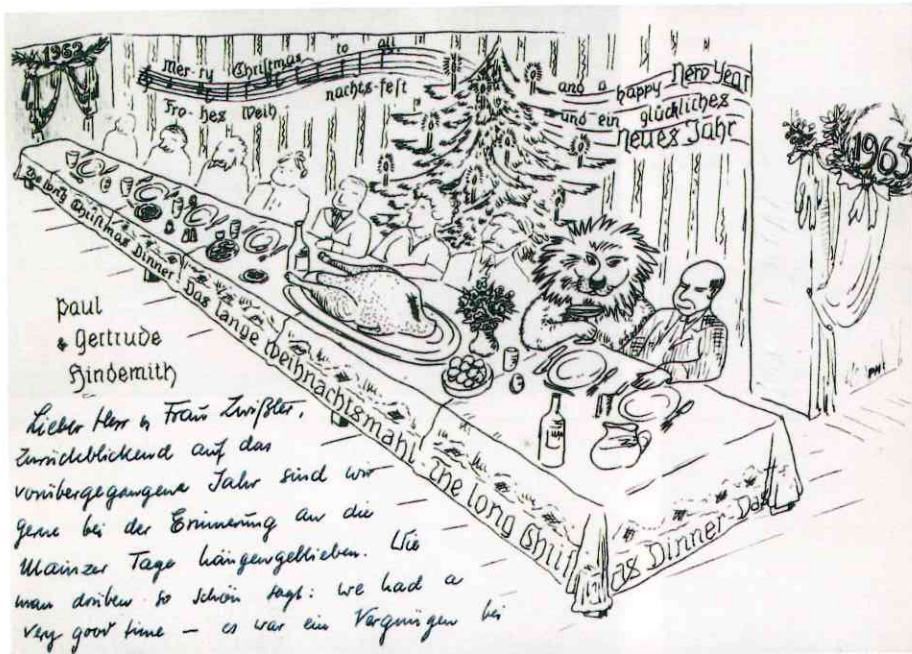 1962
Mer-ry Christmas to all
Fro-hes Weih nachts-fest
and a happy New Year
und ein glückliches
Neues Jahr
1963
The long Christmas Dinner · Das lange Weihnachtsmahl · The long Christ
as Dinner · Das
PHi
Paul
& Gertrude
Hindemith
Lieber Herr u Frau Zwißler,
Zurückblickend auf das
vorübergegangene Jahr sind wir
gerne bei der Erinnerung an die
Mainzer Tage hängengeblieben. Wie
man drüben so schön sagt: we had a
very good time – es war ein Vergnügen bei